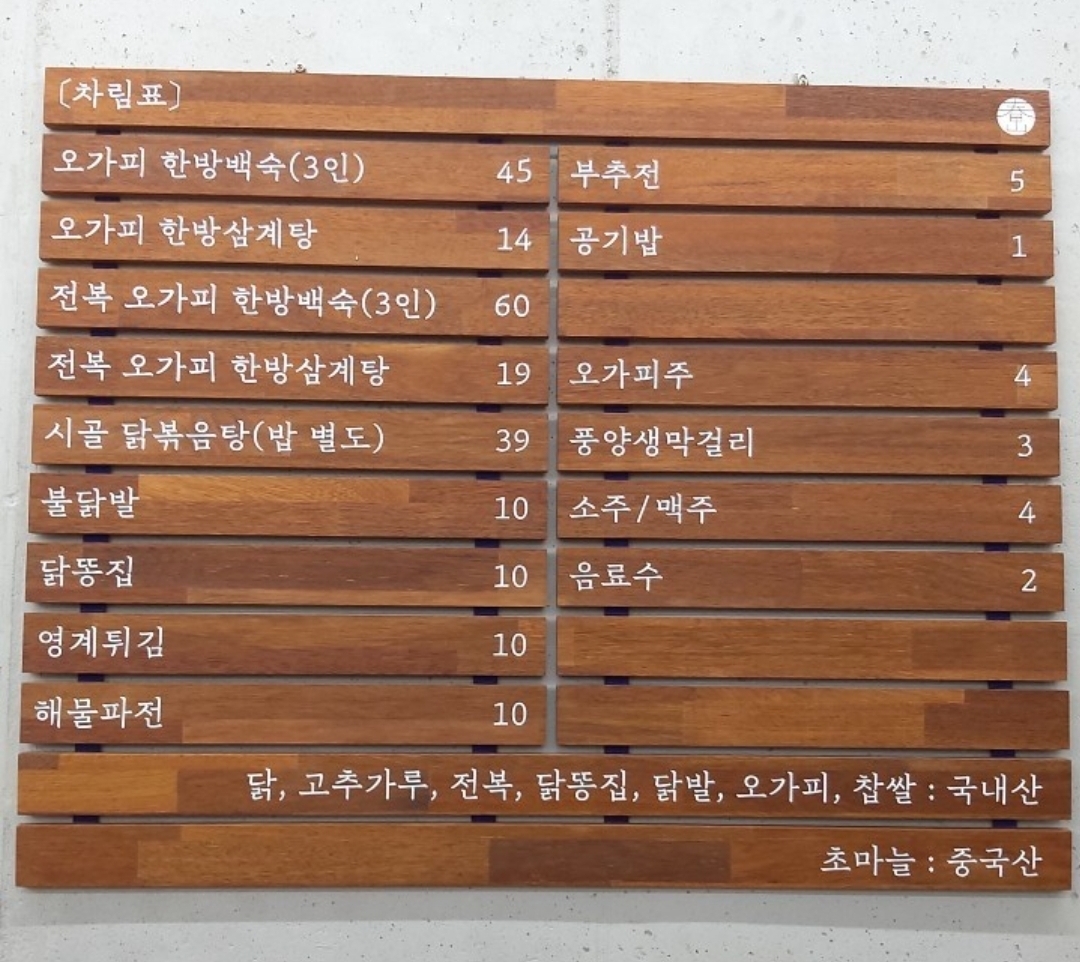 [차림표]
오가피 한방백숙(3인) 45
오가피 한방삼계탕 14
전복 오가피 한방백숙(3인) 60
전복 오가피 한방삼계탕 19
시골 닭볶음탕(밥 별도) 39
불닭발 10
닭똥집 10
영계튀김 10
해물파전 10
부추전 5
공기밥 1
오가피주 4
풍양생막걸리 3
소주/맥주 4
음료수 2
닭, 고추가루, 전복, 닭똥집, 닭발, 오가피, 찹쌀 : 국내산
초마늘 : 중국산